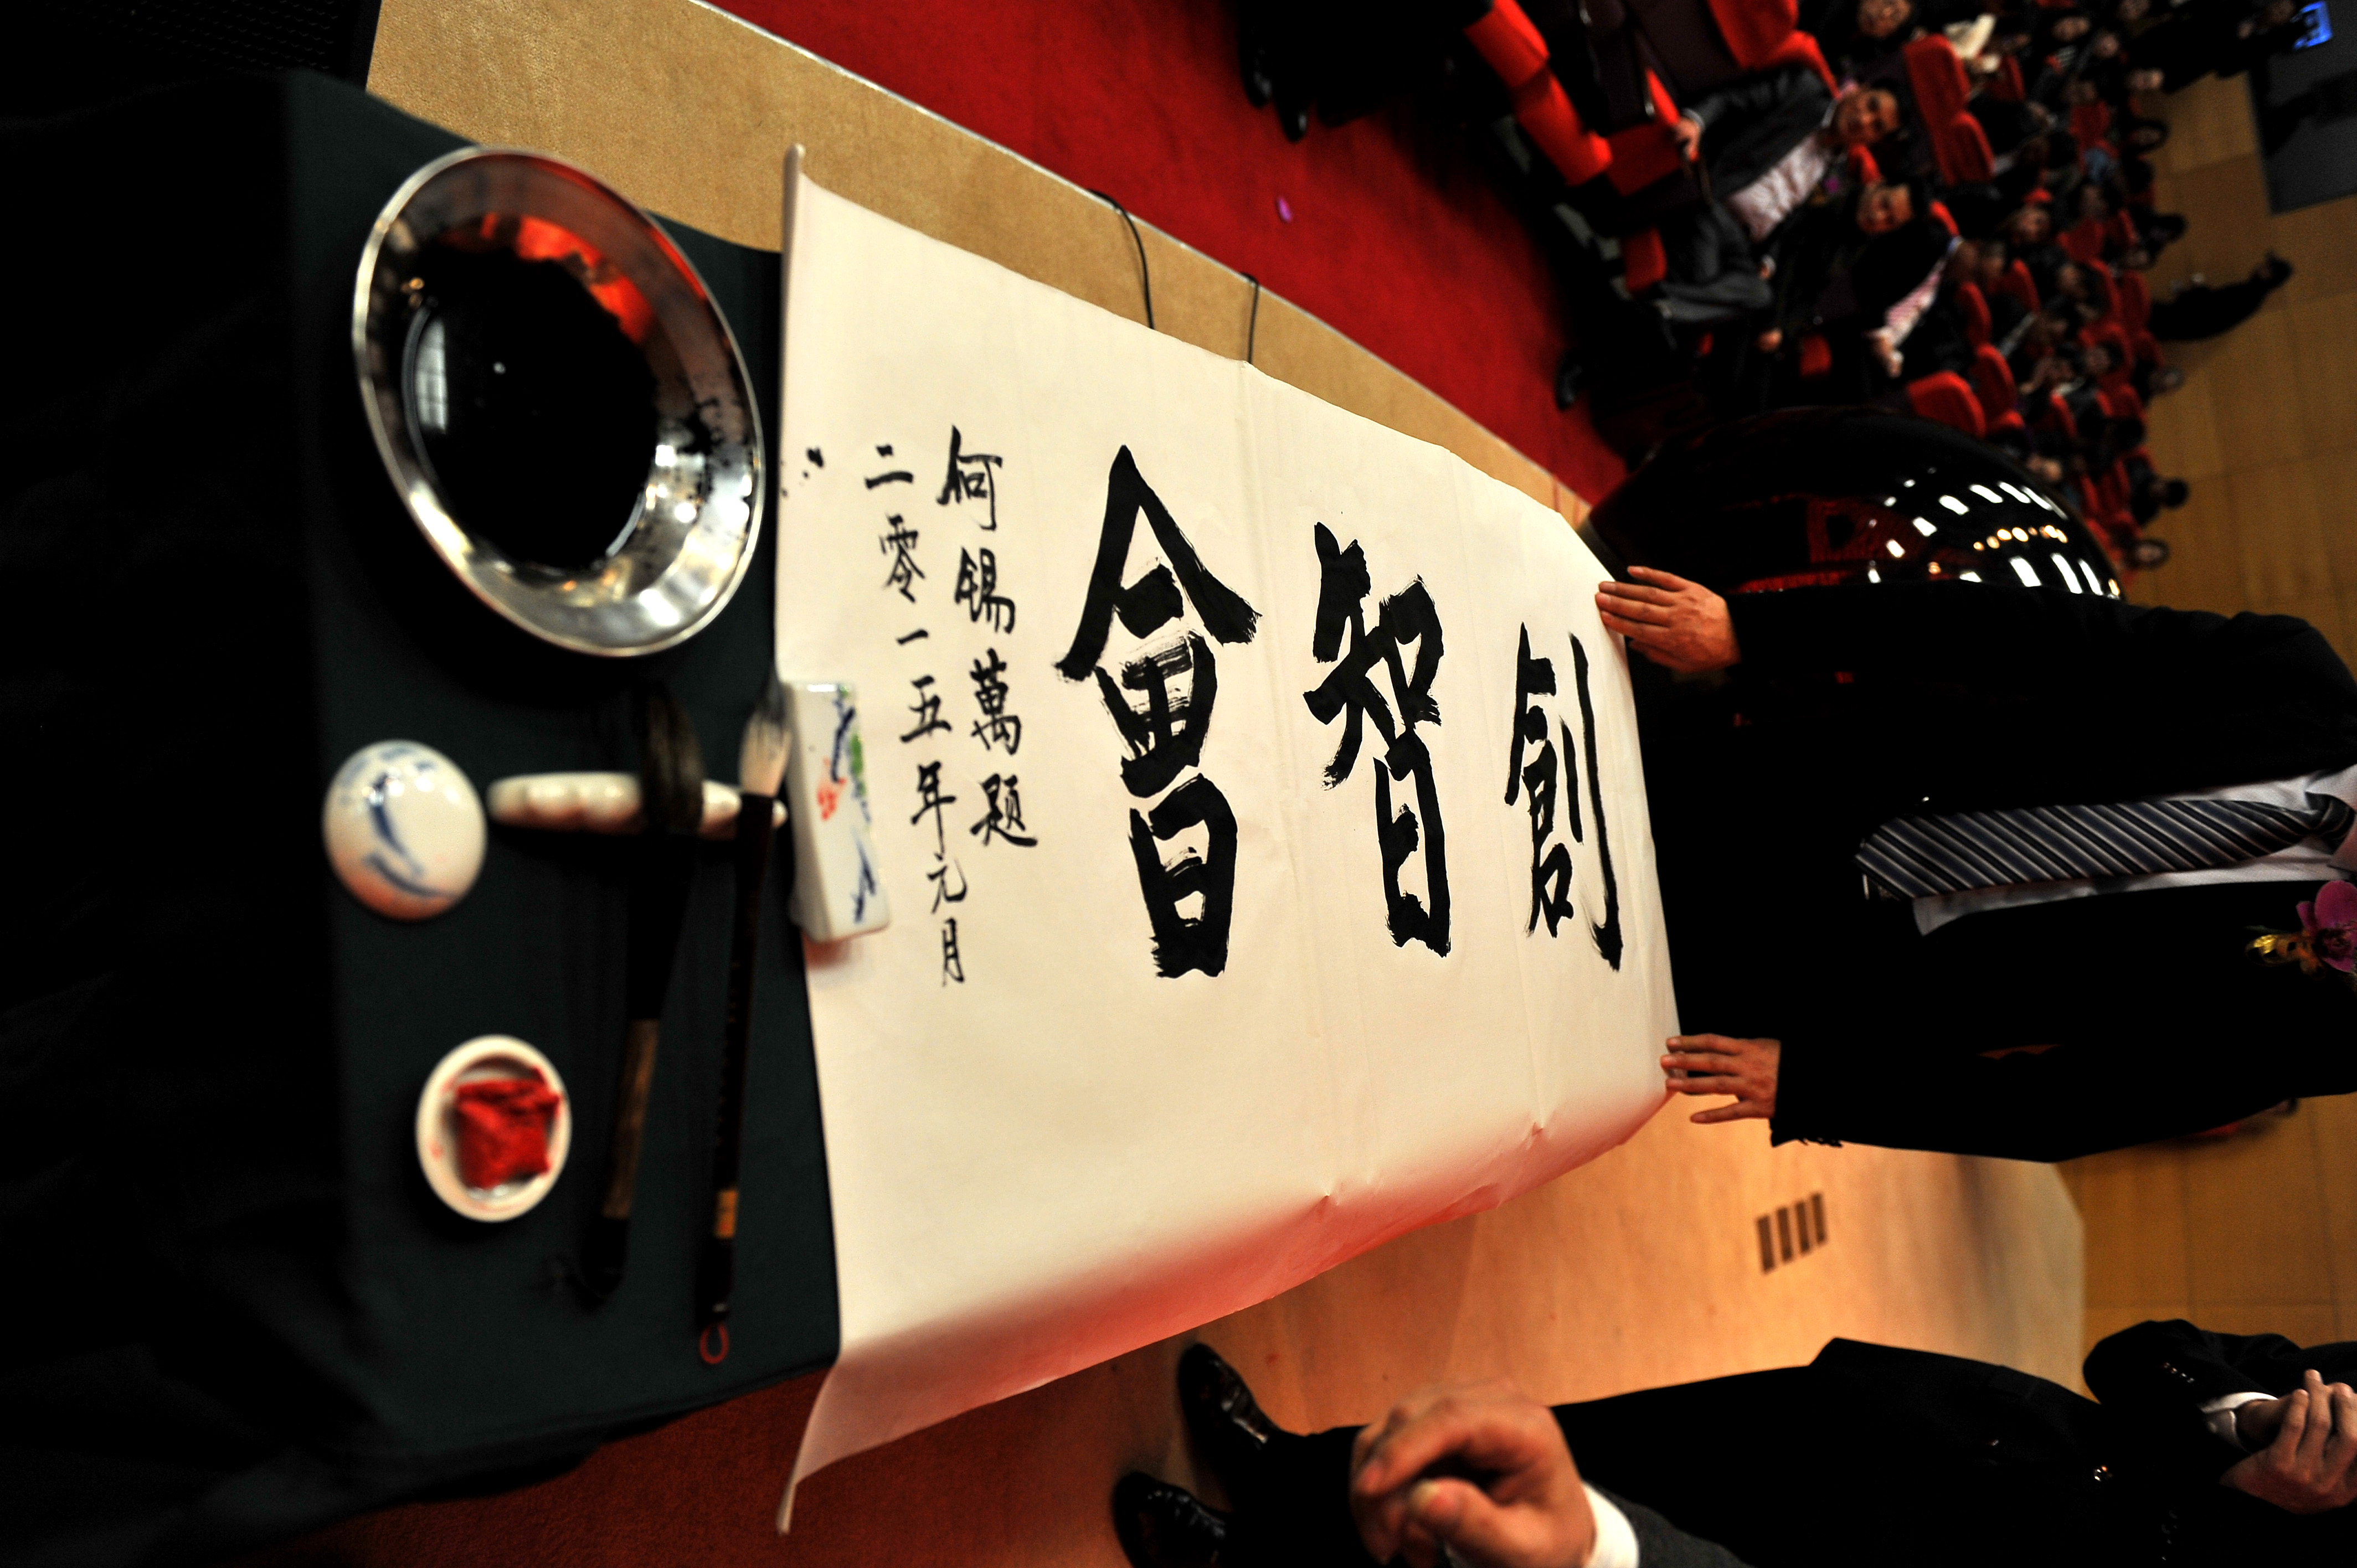 創智會
何錫萬题
二零一五年元月